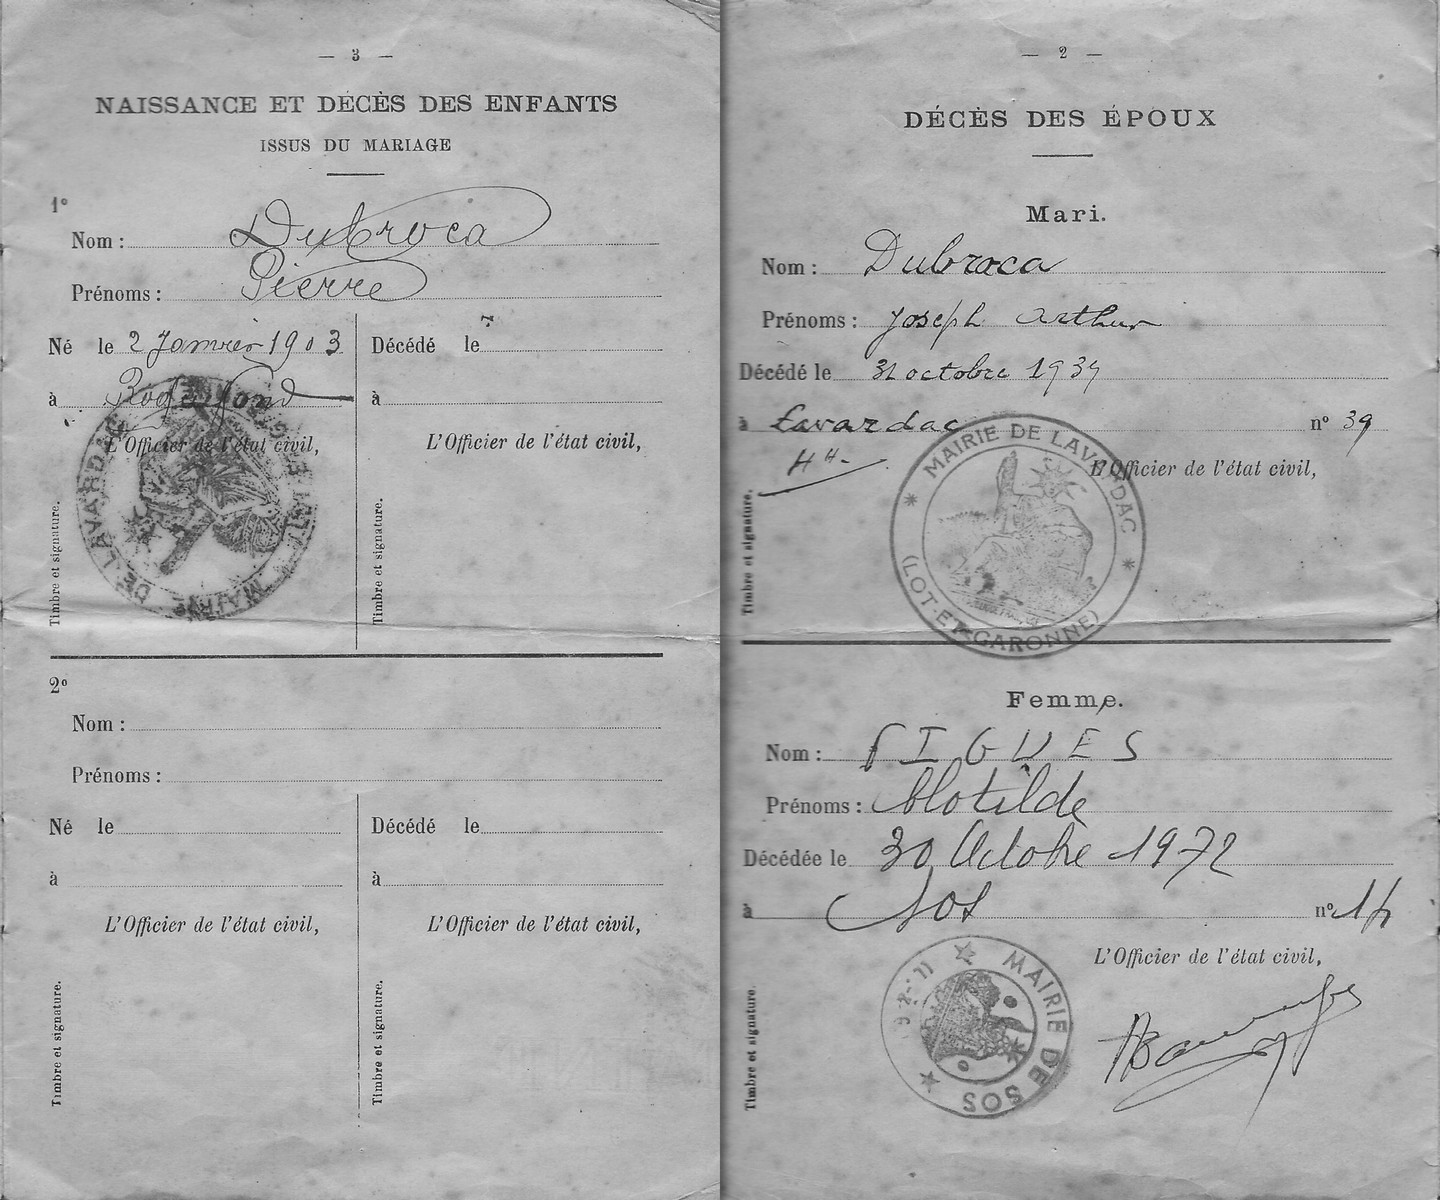 — 3 —
NAISSANCE ET DÉCÈS DES ENFANTS
ISSUS DU MARIAGE
1º
Nom : Dubroca
Prénoms : Pierre
Né le 2 Janvier 1903
à
Décédé le
à
L'Officier de l'état civil,
L'Officier de l'état civil,
Timbre et signature.
Timbre et signature.
MAIRIE DE LAVARDAC
2º
Nom :
Prénoms :
Né le
à
Décédé le
à
L'Officier de l'état civil,
L'Officier de l'état civil,
Timbre et signature.
Timbre et signature.
— 2 —
DÉCÈS DES ÉPOUX
Mari.
Nom : Dubroca
Prénoms : Joseph Arthur
Décédé le 31 octobre 1939
à Lavardac nº 39
L'Officier de l'état civil,
Timbre et signature.
MAIRIE DE LAVARDAC
(LOT-ET-GARONNE)
Femme.
Nom : PIGUES
Prénoms : Clotilde
Décédée le 30 Octobre 1972
à SOS nº 14
L'Officier de l'état civil,
Timbre et signature.
MAIRIE DE SOS